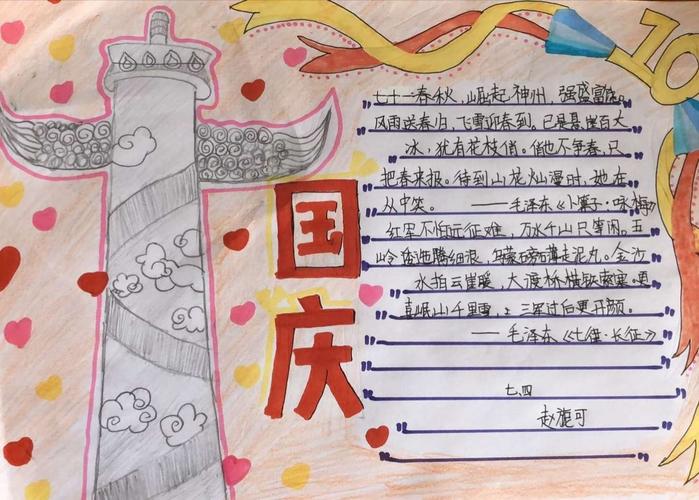 10
国
庆
七十一春秋，崛起神州，强盛富饶。
风雨送春归，飞雪迎春到。已是悬崖百丈
冰，犹有花枝俏。俏也不争春，只
把春来报。待到山花烂漫时，她在
丛中笑。——毛泽东《卜算子·咏梅》
红军不怕远征难，万水千山只等闲。五
岭逶迤腾细浪，乌蒙磅礴走泥丸。金沙
水拍云崖暖，大渡桥横铁索寒。更
喜岷山千里雪，三军过后更开颜。
——毛泽东《七律·长征》
七.四
赵旎可